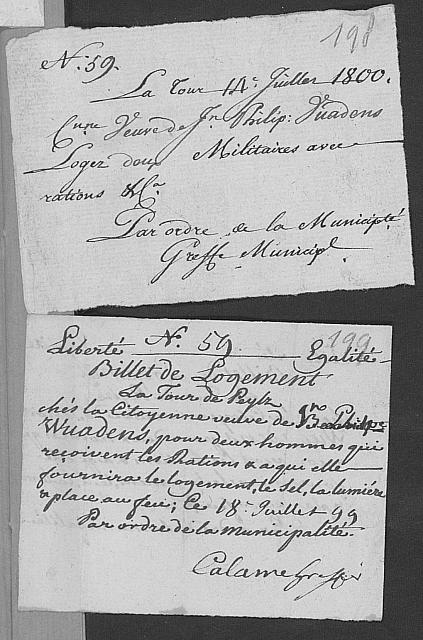 198
N.º 59.
La Tour 14.e Juillet 1800.
C.ne Veuve de J.n Philip: Vuadens
Logez deux Militaires avec
rations &c.a
Par ordre de la Municip.té
Greffe Municip.l
199
Liberté N.º 59 Egalité
Billet de Logement
La Tour de Peylz
chés la Citoyenne veuve de J.n Philippe
Wuadens, pour deux hommes qui
reçoivent les Rations & a qui elle
fournira le logement, le Sel, la lumière
& place au feu; Ce 18.e Juillet 99
Par ordre de la municipalité.
Calame Greffier